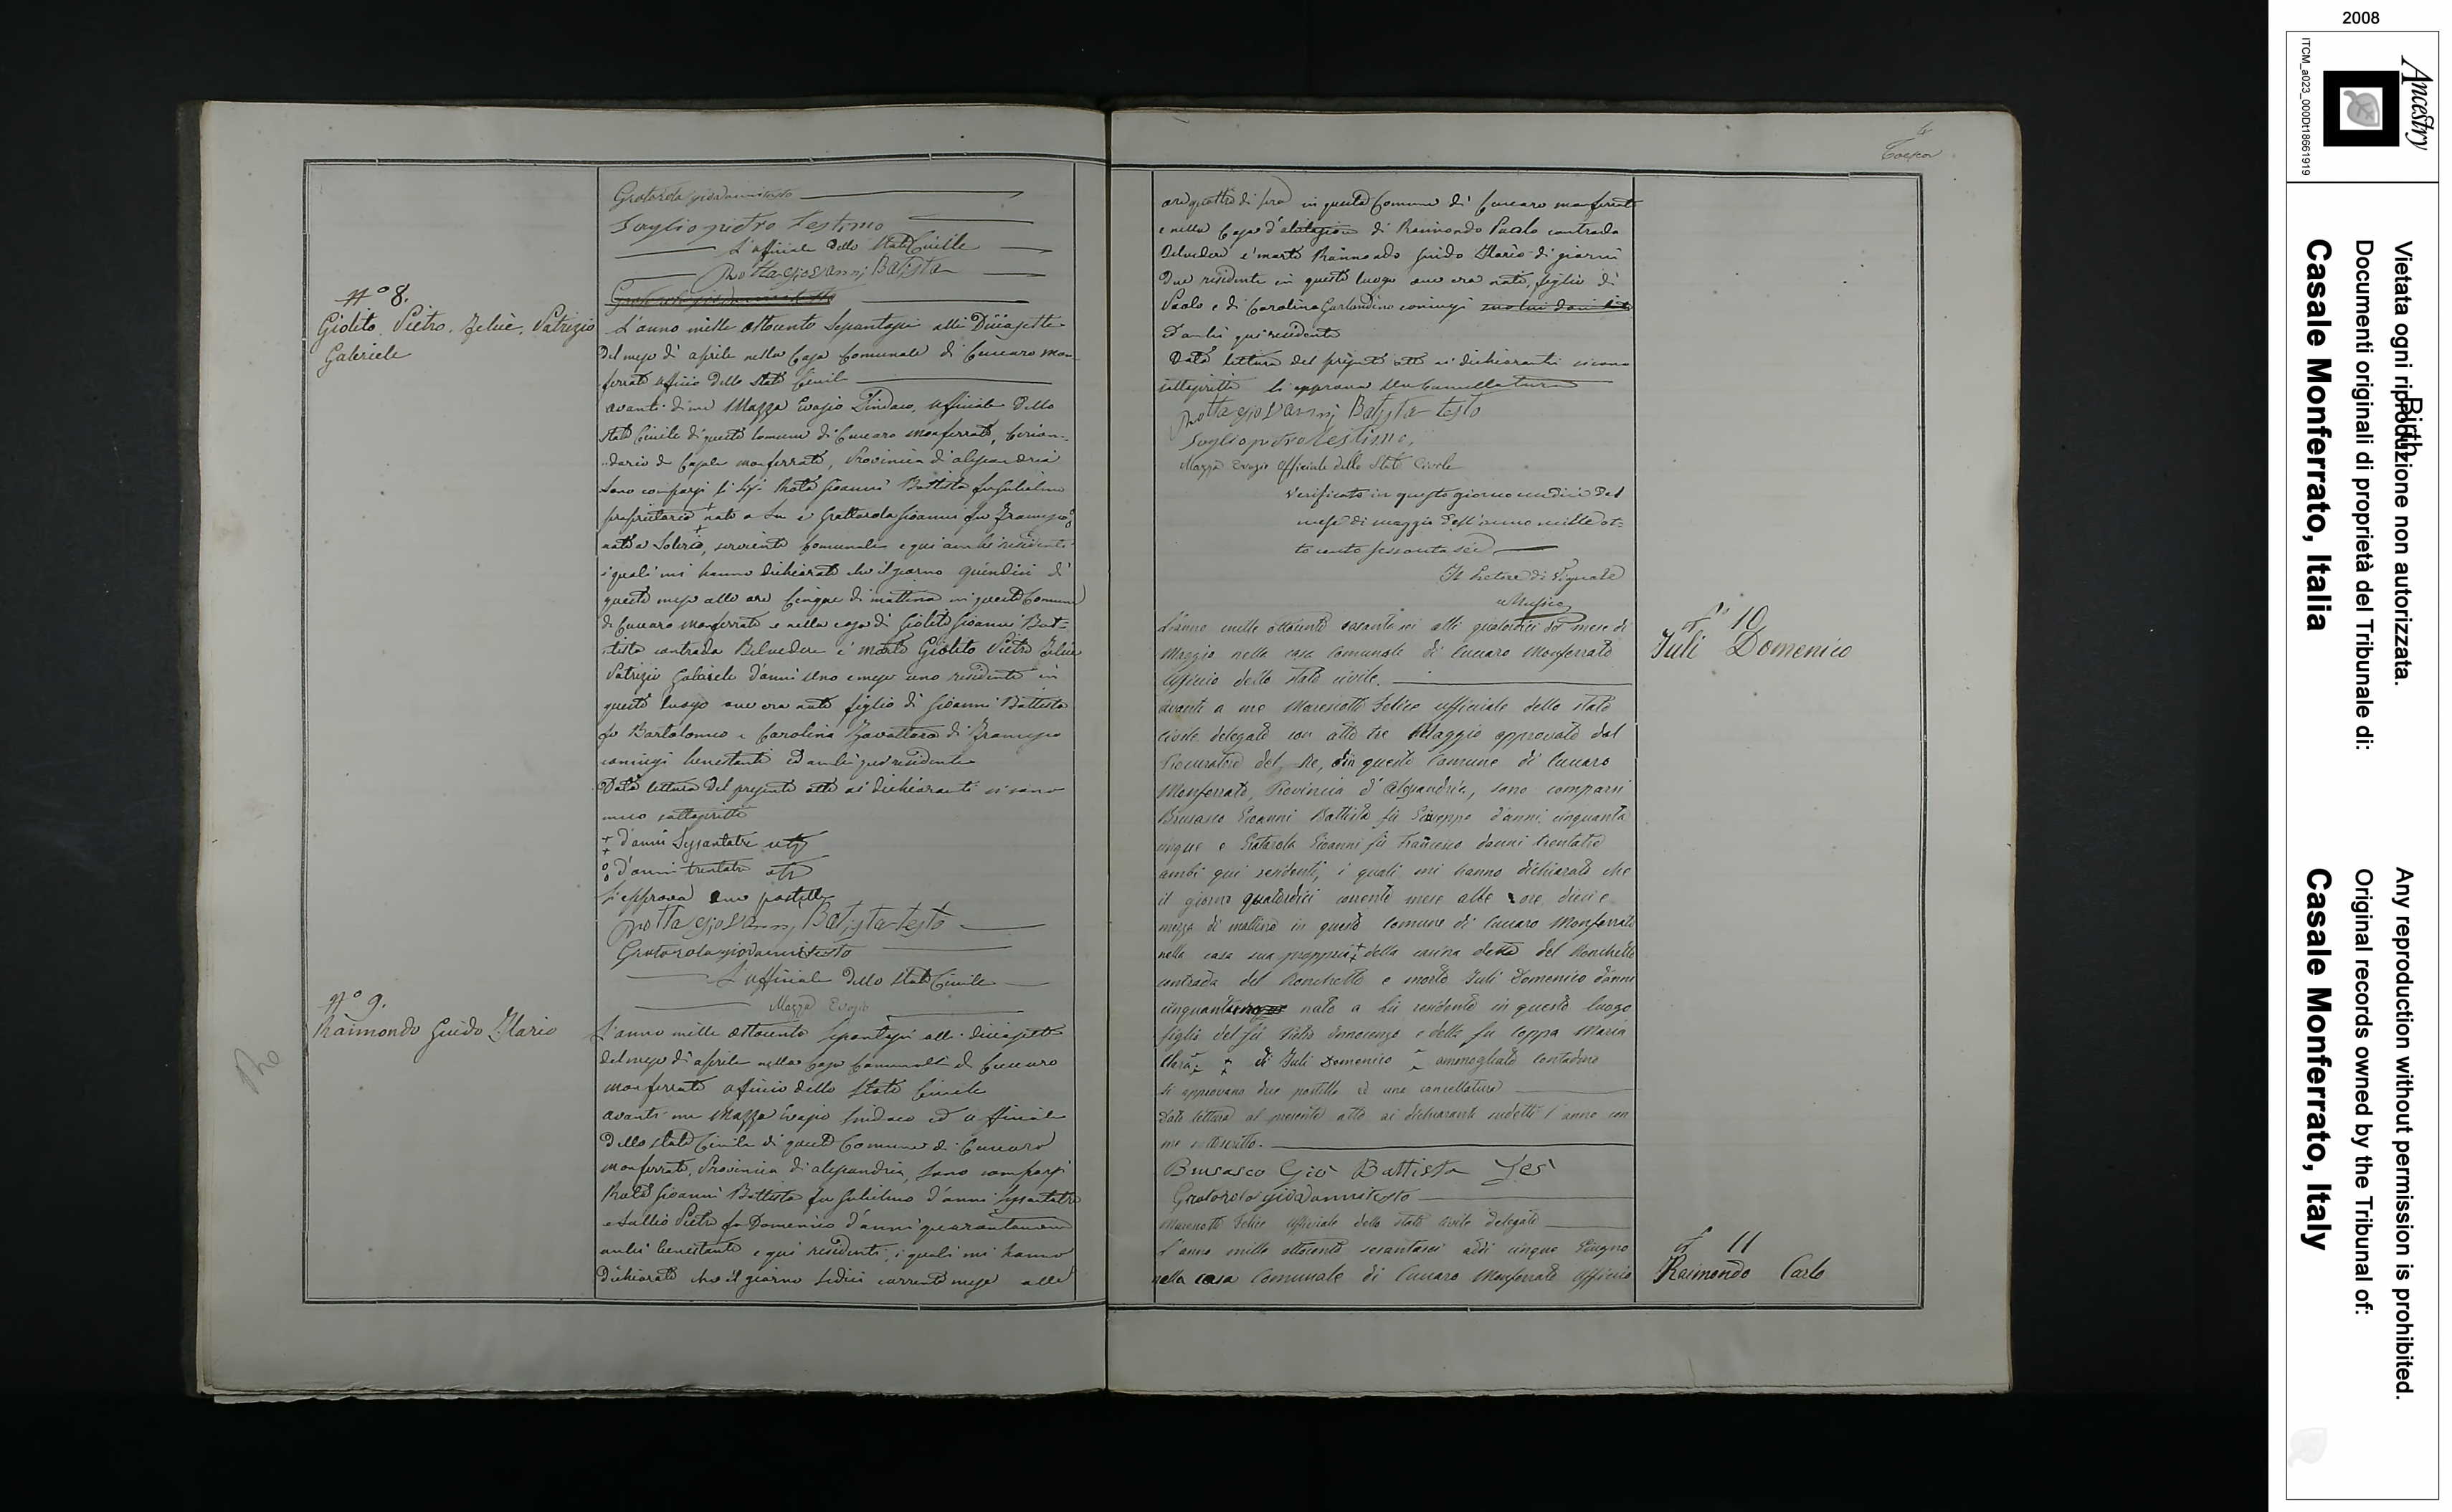 Grotorola giovanni testo
Soreglio pietro Testimo
L'uffiziale dello Stato Civile
Rotta Giovanni Batista
N° 8.
Giolito Pietro, Felice, Patrizio
Gabriele
L'anno mille ottocento sessantasei alli diciasette
del mese di aprile nella Casa Comunale di Cuccaro Mon-
ferrato Uffizio dello Stato Civile
avanti di me Mazza Evasio Sindaco, uffiziale dello
Stato Civile di questo Comune di Cuccaro Monferrato, Circon-
dario di Casale Monferrato, Provincia d'alessandria
sono comparsi li Sigri Rota Giovanni Battista fu Gulielmo
proprietario nato a Lu e Grattarola Giovanni fu Francesco
nato a Solerio, serviente Comunale e qui ambi residenti
i quali mi hanno dichiarato che il giorno quindici di
questo mese alle ore Cinque di mattina in questo Comune
di Cuccaro Monferrato e nella casa di Giolito Giovanni Bat-
tista contrada Belvedere è morto Giolito Pietro Felice
Patrizio Gabriele d'anni uno e mese uno residente in
questo luogo ove era nato figlio di Giovanni Battista
fu Bartolomeo e Carolina Zavattaro di Francesco
coniugi benestanti ed ambi qui residenti
Data lettura del presente atto ai dichiaranti si sono
meco sottoscritti
d'anni Sessantatre
d'anni trentatre
Si approva due postille
Rotta Giovanni Batista testo
Grotorola giovanni testo
L'uffiziale dello Stato Civile
Mazza Evasio
N° 9.
Raimondo Guido Ilario
L'anno mille ottocento sessantasei alli diciasette
del mese di aprile nella Casa Comunale di Cuccaro
Monferrato uffizio dello Stato Civile
avanti me Mazza Evasio Sindaco ed uffiziale
dello Stato Civile di questo Comune di Cuccaro
Monferrato, Provincia di alessandria, sono comparsi
Rota Giovanni Battista fu Gulielmo d'anni sessantatre
e Pietro fu Domenico d'anni quarantanove
ambi benestanti e qui residenti, i quali mi hanno
dichiarato che il giorno sedici corrente mese alle
ore quattro di sera in questo Comune di Cuccaro Monferrato
e nella Casa d'abitazione di Raimondo Paolo contrada
Belvedere è morto Raimondo Guido Ilario di giorni
due residente in questo luogo ove era nato, figlio di
Paolo e di Carolina Garlandino coniugi
ed ambi qui residenti
Data lettura del presente atto ai dichiaranti si sono
sottoscritti Si approva una Cancellatura
Rotta Giovanni Batista testo
Soreglio pietro testimo,
Mazza Evasio Uffiziale dello Stato Civile
Verificato in questo giorno undici del
mese di maggio dell'anno mille ot-
to cento sessanta sei
Il Pretore di Vignale
L'anno mille ottocento sesanta sei alli quatordici del mese di
Maggio nella casa Comunale di Cucaro Monferrato
Ufficio dello Stato civile.
Avanti a me Marescotti Felice ufficiale dello stato
civile delegato con atto tre Maggio approvato dal
Procuratore del Re, di questo Comune di Cucaro
Monferrato, Provincia d'Alessandria, sono comparsi
Brusasco Giovanni Battista fu Giuseppe d'anni cinquanta
cinque e Gratarola Giovanni fu Francesco d'anni trentatre
ambi qui residenti, i quali mi hanno dichiarato che
il giorno quatordici corrente mese alle ore dieci e
mezza di mattina in questo Comune di Cucaro Monferrato
nella casa sua propria della cascina detta del Ronchetto
contrada del Ronchetto è morto Juli Domenico d'anni
cinquanta nato a Lù residente in questo luogo
figlio del fù Pietro Innocenzo e della fu Coppa Maria
Clara di Juli Domenico ammogliato contadino
Si approvano due postille ed una cancellatura
Data lettura al presente atto ai dichiaranti sudetti l'anno con
me sottoscritto.
Brusasco Gio Battista Tes
Grotorola giovanni testo
Marescotti Felice Ufficiale dello stato civile delegato
L'anno mille ottocento sesantasei addi cinque Giugno
nella casa Comunale di Cucaro Monferrato Ufficio
N° 10
Juli Domenico
N° 11
Raimondo Carlo
2008
Ancestry
ITCM_a023_000Dt18661919
Birth
Vietata ogni riproduzione non autorizzata.
Documenti originali di proprietà del Tribunale di:
Casale Monferrato, Italia
Any reproduction without permission is prohibited.
Original records owned by the Tribunal of:
Casale Monferrato, Italy